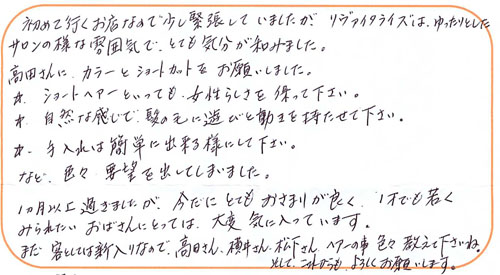 初めて行くお店なので少し緊張していましたが リヴァイタライズは、ゆったりとした
サロンの様な雰囲気で、とても気分が和みました。
高田さんに、カラーとショートカットをお願いしました。
ショートヘアーといっても、女性らしさを保って下さい。
自然な感じで、髪の毛に遊びと動きを持たせて下さい。
手入れは簡単に出来る様にして下さい。
など、色々 要望を出してしまいました。
1ヵ月以上過ぎましたが、今だに とても おさまりが良く、1才でも若く
みられたい おばさんにとっては、大変 気に入っています。
まだ 客としては新入りなので、高田さん、横井さん、松下さん ヘアーの事 色々 教えて下さいね。
そして、これからも よろしくお願いします。